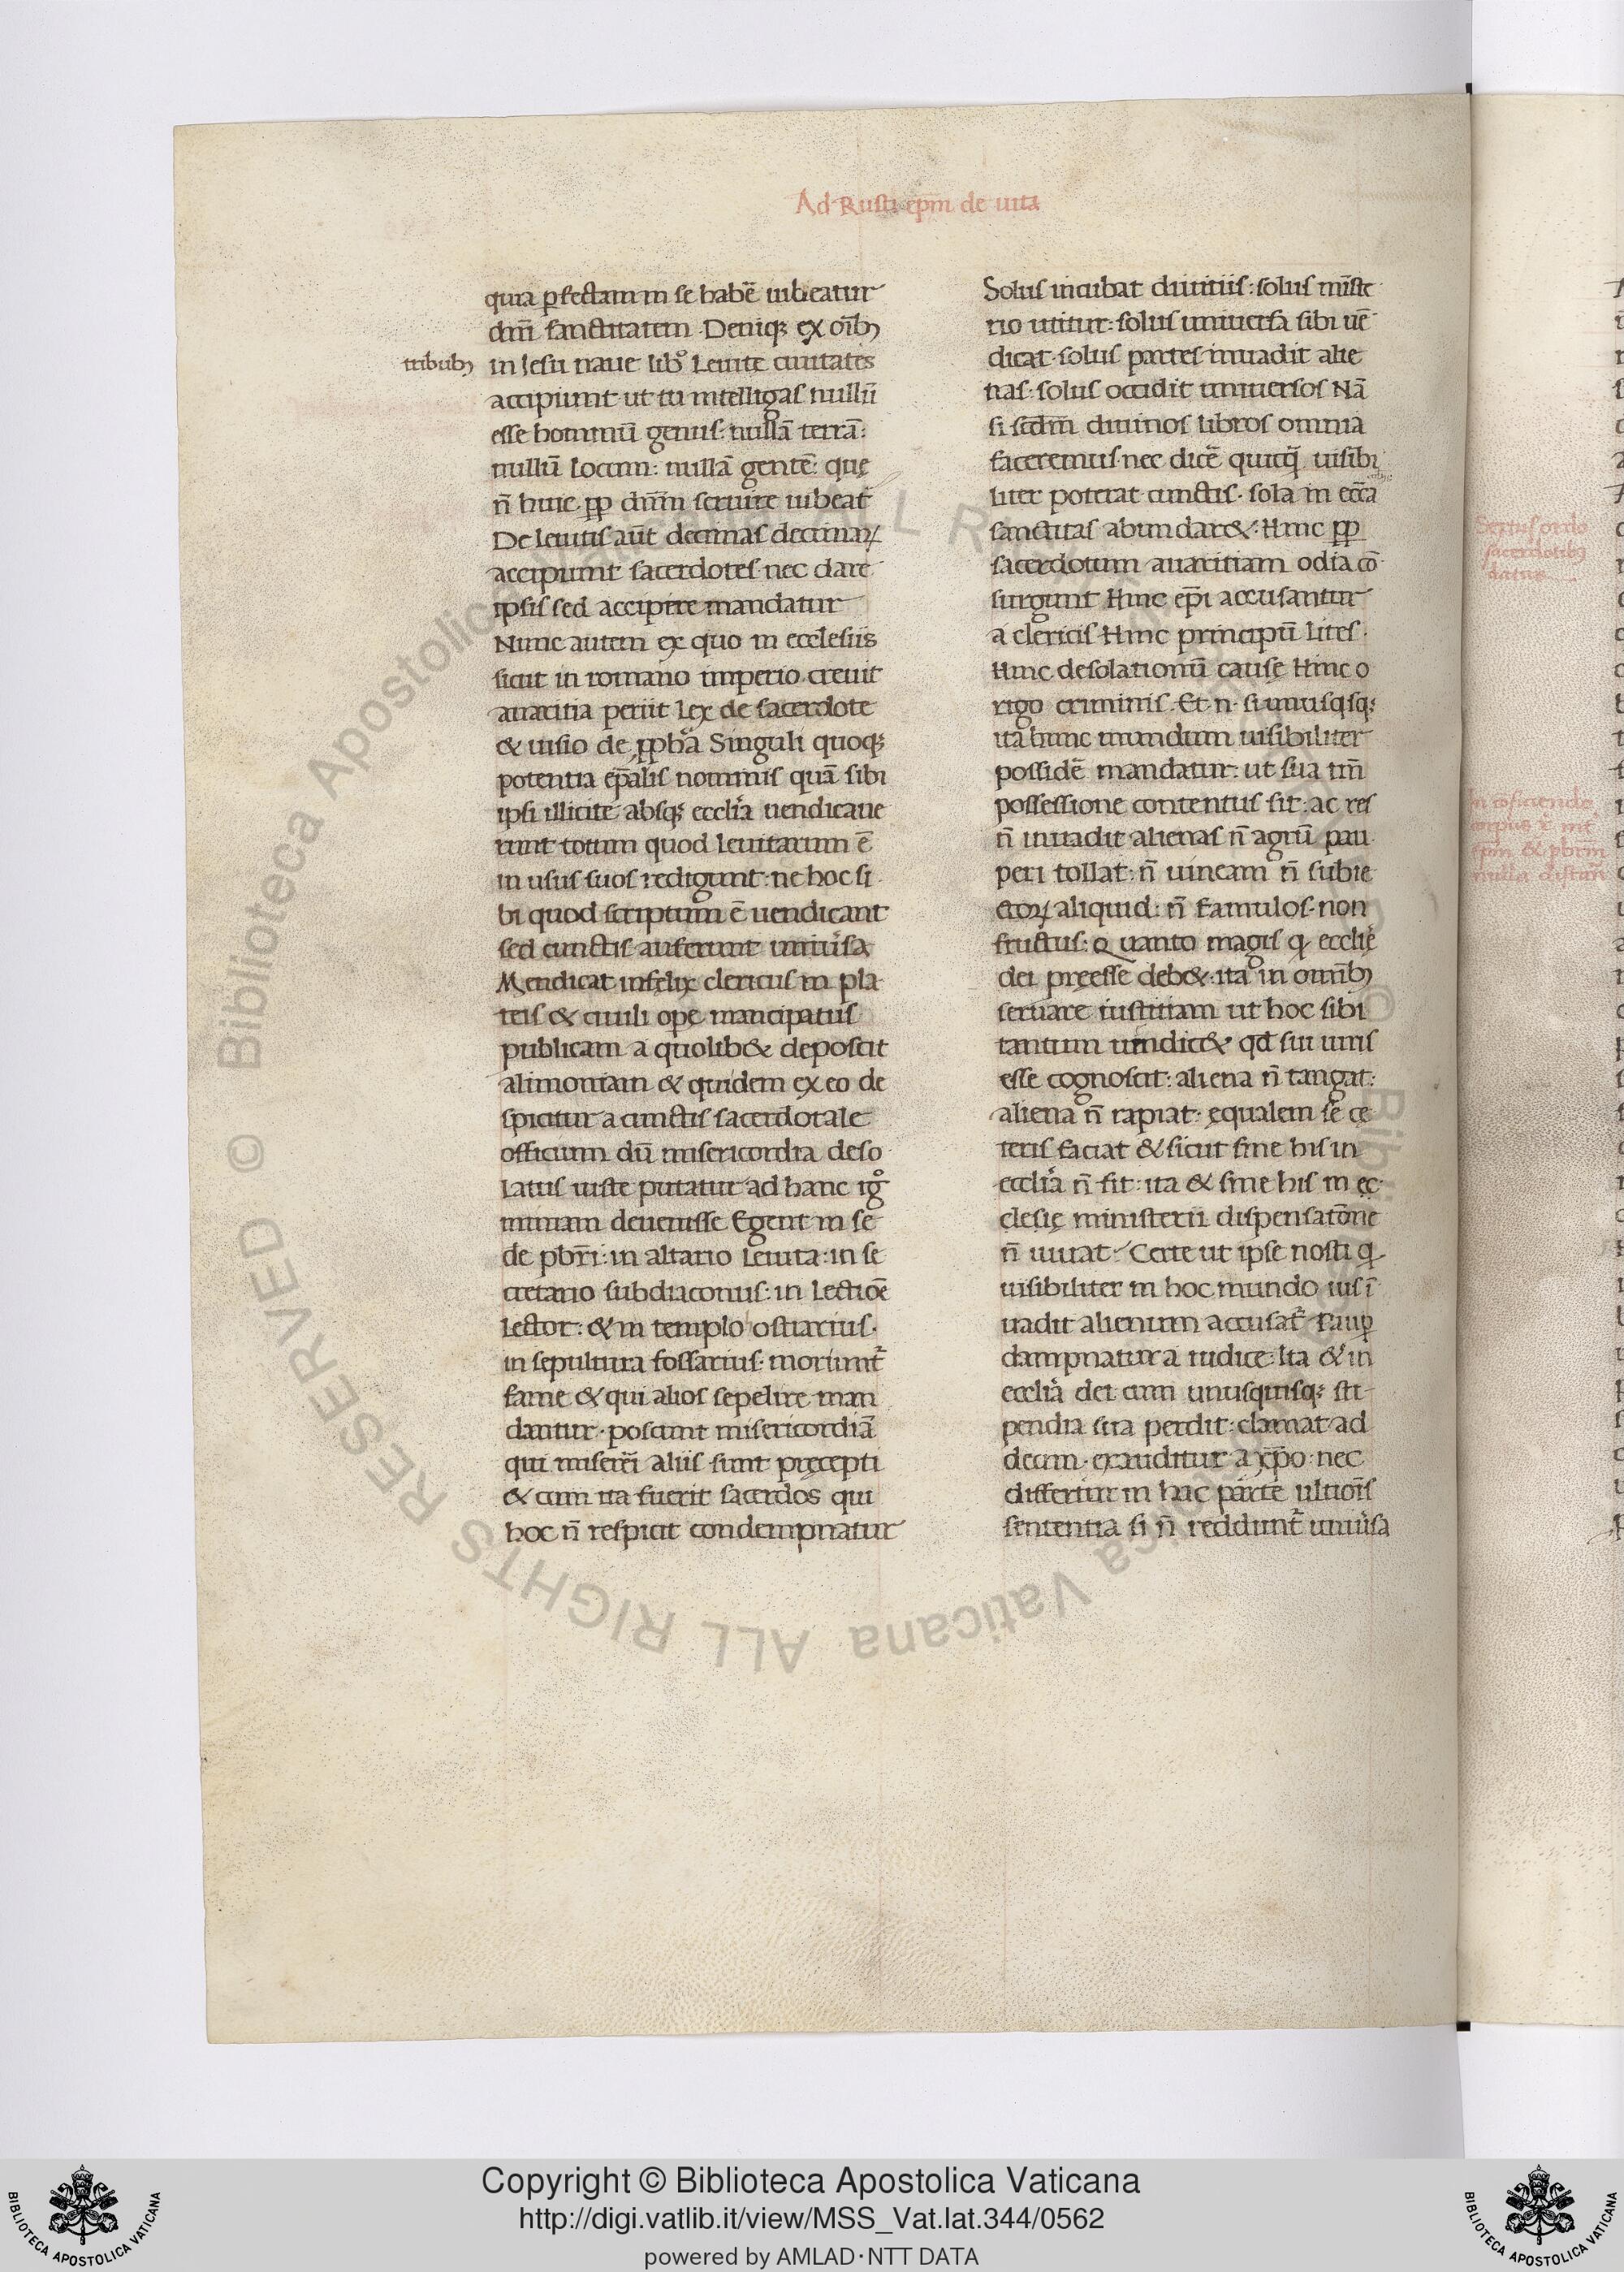 Ad Rusti. ep̄m de uita
quia ꝑfectam in se habē iubeatur
dn̄i sanctitatem. Deniqꝫ ex oīb;
tribub;
in Iesu naue libº Leuitę ciuitates
accipiunt ut tu intelligas nullū
esse hominū genus: nullā terrā:
nullū locum: nullā gentē: quę
n̄ huic ꝓꝑ dn̄m seruire iubeat᷑
De leuitis aūt decimas decimaꝝ
accipiunt sacerdotes. nec dare
ipsis sed accipere mandatur
Nunc autem ex quo in ecclesiis
sicut in romano imperio. creuit
auaritia periit lex de sacerdote
& uisio de ꝓꝑha Singuli quoqꝫ
potentia ep̄alis nominis quā sibi
ipsi illicite absqꝫ eccl̓ia uendicaue
runt totum quod leuitarum ē
in usus suos redigunt: ne hoc si
bi quod scriptum ē uendicant
sed cunctis auferunt uniu̓sa
Mendicat infelix clericus in pla
teis & ciuili ope mancipatus
publicam a quolib& deposcit
alimoniam & quidem ex eo de
spicitur a cunctis sacerdotale
officium dū misericordia deso
latus iuste putatur ad hanc igº
miniam deuenisse Egent in se
de pbr̄i: in altario leuita: in se
cretario subdiaconus: in lectiōe
lector: & in templo ostiarius.
in sepultura fossarius. moriunt᷑
fame & qui alios sepelire man
dantur. poscunt misericordiā
qui miserēi aliis sunt pręcepti
& cum ita fuerit sacerdos qui
hoc n̄ respicit condempnatur
Solus incubat diuitiis: solus mīste
rio utitur: solus uniuersa sibi uē
dicat. solus partes inuadit alie
nas. solus occidit uniuersos Nā
si scdm̄ diuinos libros omnia
faceremus. nec dicē quicq̄ uisibi
liter poterat cunctis. sola in ecc̄a
sanctitas abundar&. Hinc ꝓꝑ
sacerdotum auaritiam odia cō
surgunt Hinc ep̄i accusantur
a clericis Hinc principū lites.
Hinc desolationū causę Hinc o
rigo criminis. Et .n. si unusqisqꝫ
ita hunc mundum uisibiliter
possidē mandatur: ut sua tm̄
possessione contentus sit: ac res
n̄ inuadit alienas n̄ agrū pau
peri tollat: n̄ uineam n̄ subie
ctoꝝ aliquid: n̄ famulos. non
fructus: Quanto magis q̨ eccl̓ię
dei pręesse deb&. ita in omīb;
seruare iustitiam ut hoc sibi
tantum uindic& qd̄ sui iuris
esse cognoscit: aliena n̄ tangat:
aliena n̄ rapiat. ęqualem se cę
teris faciat & sicut sine his in
eccl̓ia n̄ sit: ita & sine his in ec
clesię ministerii dispensatōne
n̄ uiuat. Certe ut ipse nosti q̨
uisibiliter in hoc mundo ius ī
uadit alienum accusat᷑ Pauꝑ
dampnatur a iudice: Ita & in
eccl̓ia dei cum unusquisqꝫ sti
pendia sua perdit: clamat ad
deum. exauditur a xp̄o. nec
differtur in hac parte ultiōis
sententia si n̄ reddunt᷑ uniu̓sa
Sextus ordo
sacerdotib;
datus
Copyright © Biblioteca Apostolica Vaticana
http://digi.vatlib.it/view/MSS_Vat.lat.344/0562
powered by AMLAD·NTT DATA
BIBLIOTECA APOSTOLICA VATICANA
BIBLIOTECA APOSTOLICA VATICANA
© Biblioteca Apostolica Vaticana ALL RIGHTS RESERVED